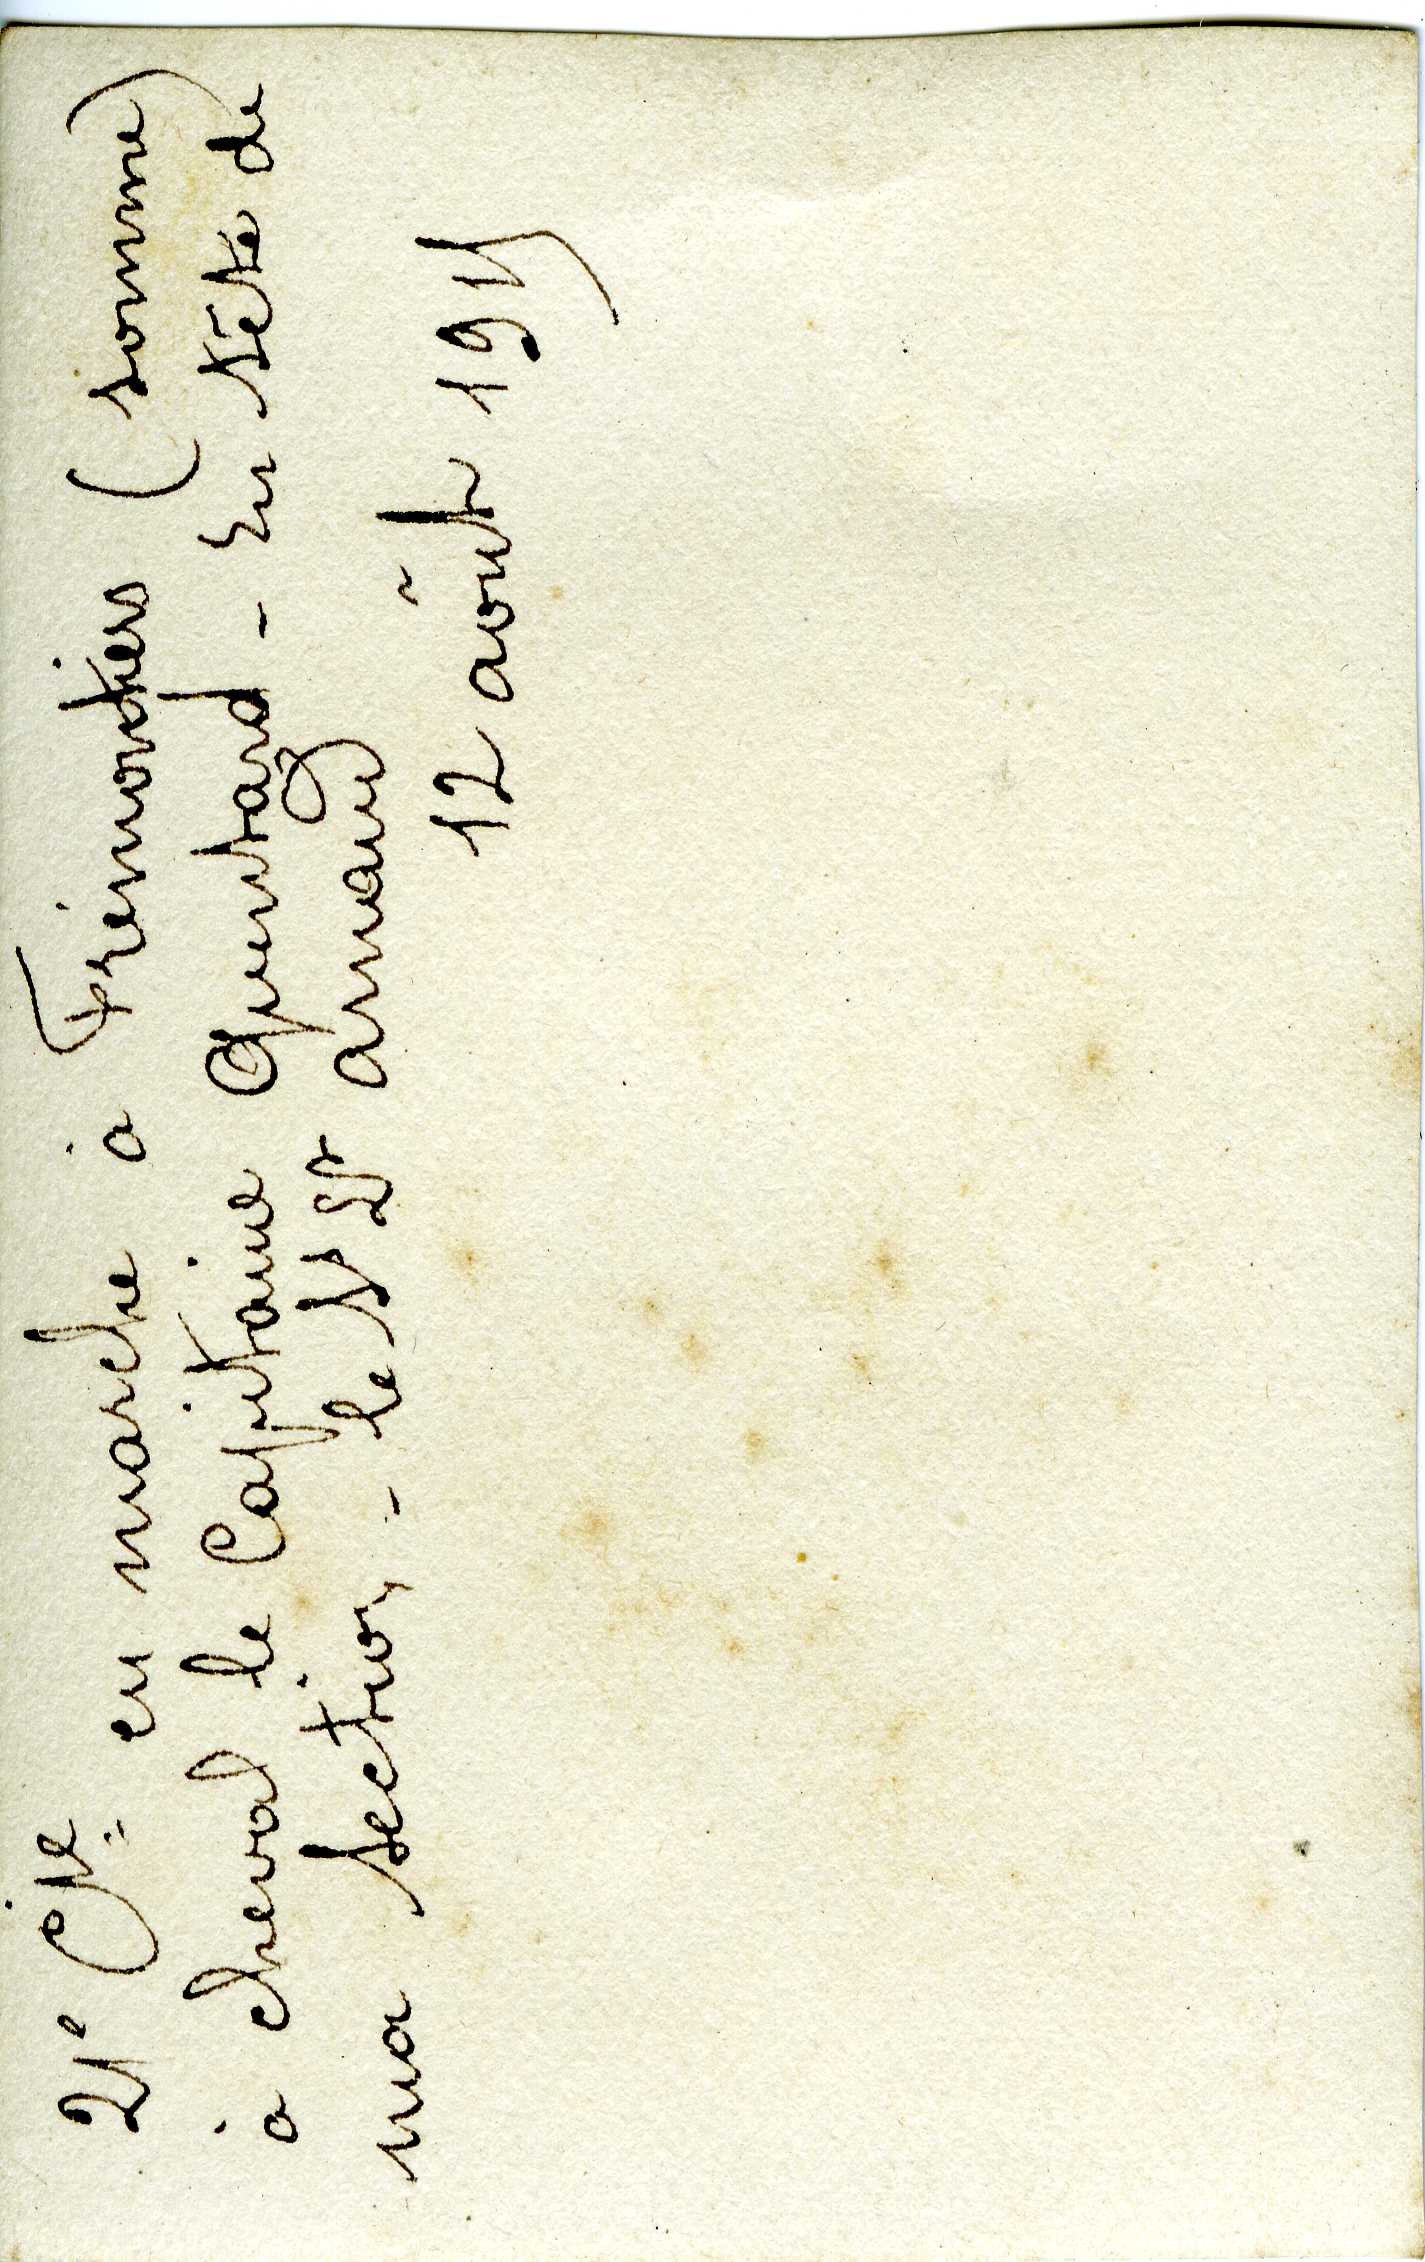 21e Cie en marche à Frémontiers (Somme)
à cheval le Capitaine Quentard - En tête de
ma section - le S Lt Arnaud
12 août 1915